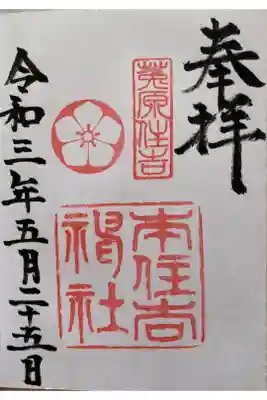 奉拝
菟原住吉
本住吉神社
令和三年五月二十五日